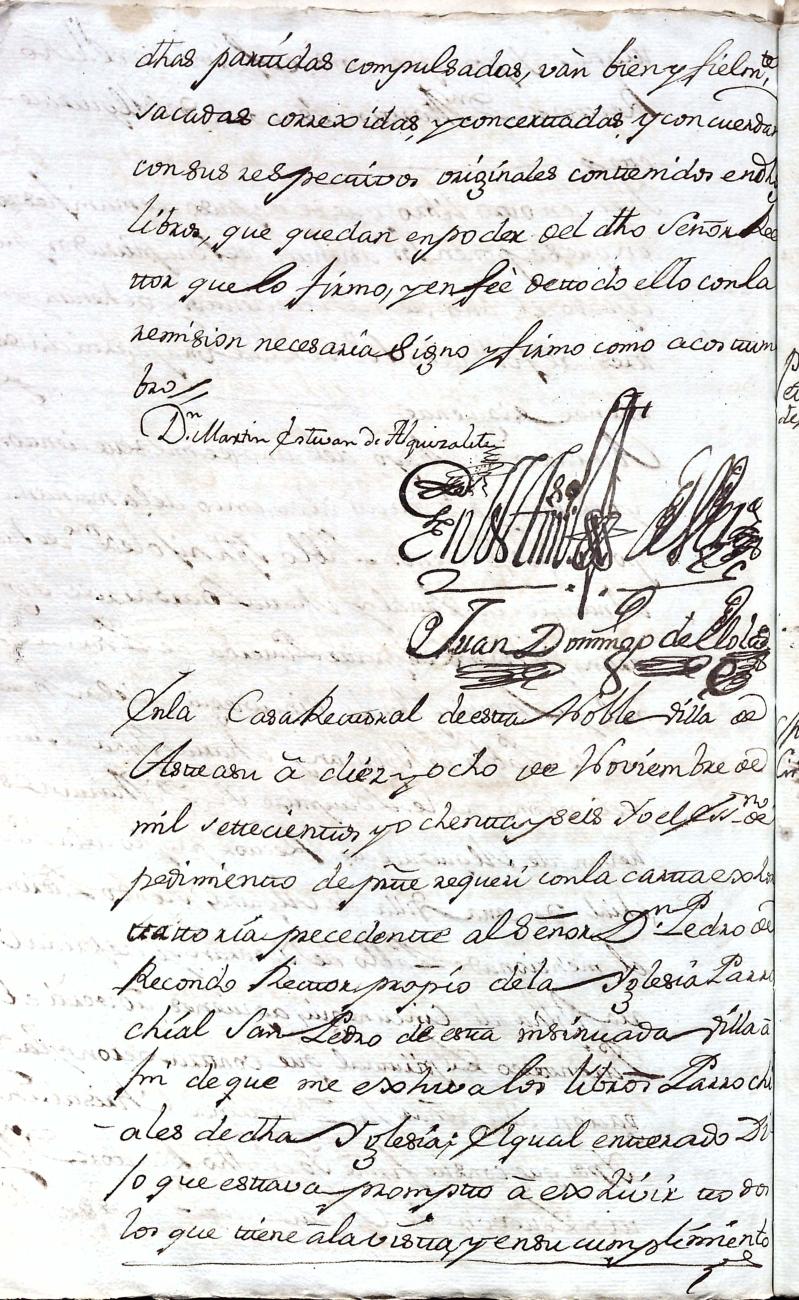 dhas partidas compulsadas, ván bien y fielmte
sacadas correxidas, y concertadas, y concuerdan
con sus respectivos originales contenidos en dhos
libros, que quedan en poder del dho Señor Rec
ttor que lo firmo, y en feè de ttodo ello con la
remision necesaria Signo y firmo como acostum
bro
Dn. Martin Estevan de Alquizalete
En testimo de Verdad
Juan Domingo de
En la Casa Rectoral de esta Noble Villa de
Asteasu â diez y ocho de Noviembre de
mil settecientos y ochentta y seis Yo el Essno de
pedimientto de parte requeri con la cartta exhor
ttatoria precedentte al Señor Dn. Pedro de
Recondo Rector propio de la Yglesia Parro
chial San Pedro de esta insinuada Villa â
fin de que me exhiva los libros Parrochi
ales de dha Yglesia; El qual entterado Di
jo que esttava prompto â exhivir ttodos
los que tiene â la vistta, y en su cumplimiento